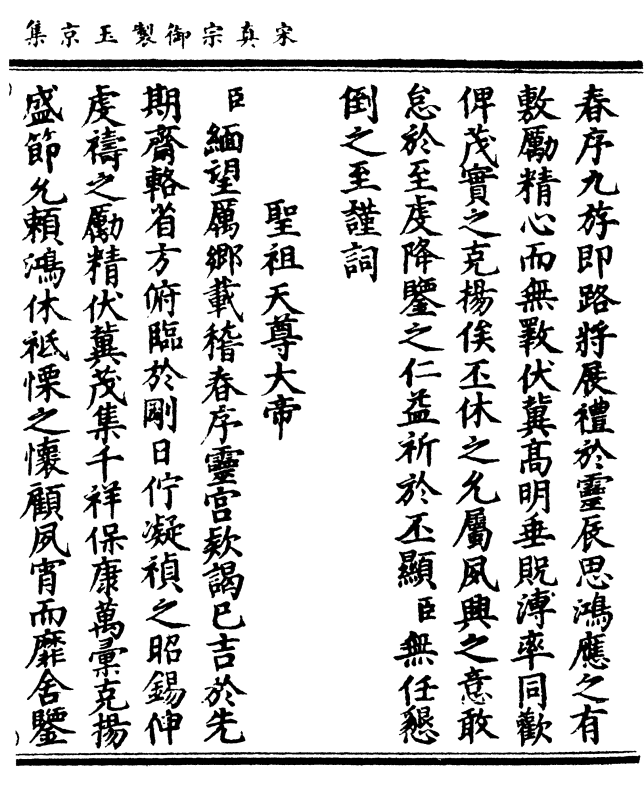 宋真宗御製玉京集
春序九斿即路將展禮於靈辰思鴻應之有
敷勵精心而無斁伏冀高明垂貺溥率同歡
俾茂實之克揚俟丕休之允屬夙興之意敢
怠於至虔降鑒之仁益祈於丕顯臣無任懇
倒之至謹詞
聖祖天尊大帝
臣緬望厲鄉載稽春序靈宮款謁已吉於先
期齋輅省方俯臨於剛日佇凝禎之昭錫伸
虔禱之勵精伏冀茂集千祥保康萬彙克揚
盛節允賴鴻休祗慄之懷顧夙宵而靡舍鑒